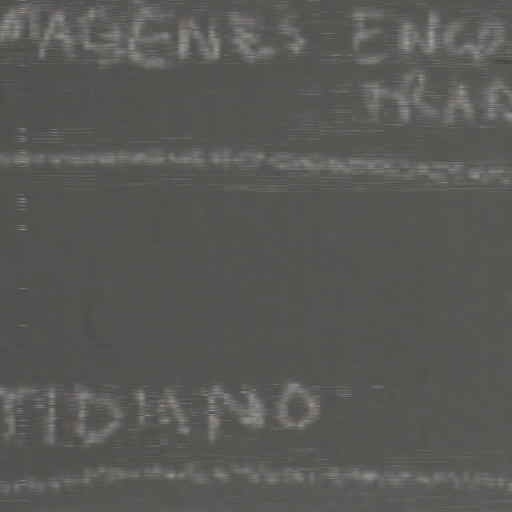 MAGENES ENCO
TRAD
TIDIANO